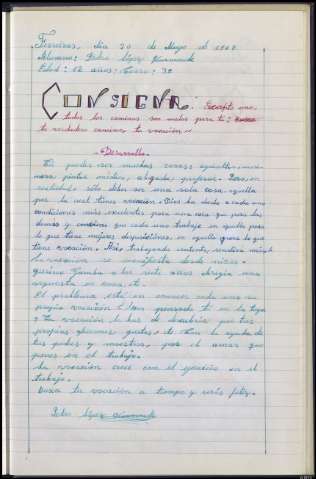 día 20 de Mayo de
Alumno: Pedro López
Edad: 12 años: Curso: 3º
CONSIGNA: Excepto uno,
todos los caminos son malos para ti: 
tu verdadero camino, tu vocación.
-Desarrollo-
Tú puedes ser muchas cosas; 
pintor médico, abogado, profesor. Pero, en
realidad sólo debes ser una sola cosa: aquella
por la cual tienes vocación. Dios ha dado a cada uno
condiciones más excelentes para una cosa que para las
demás y conviene que cada uno trabaje en aquello para
lo que tiene mejores disposiciones, en aquello para lo que
tiene vocación. Así trabajarás contento, rendirás más
La vocación se manifiesta desde niños.
Gamba a los siete años dirigía una
orquesta
El problema está en conocer cada uno su
propia vocación. ¿Has pensado tú en la tuya?
Tu vocación la has de descubrir por tus
propias aficiones, gustos, etc. Con la ayuda de
tus padres y maestros, por el amor que
pones en el trabajo.
La vocación crece con el ejercicio en el
trabajo.
tu vocación a tiempo y serás feliz.
Pedro López